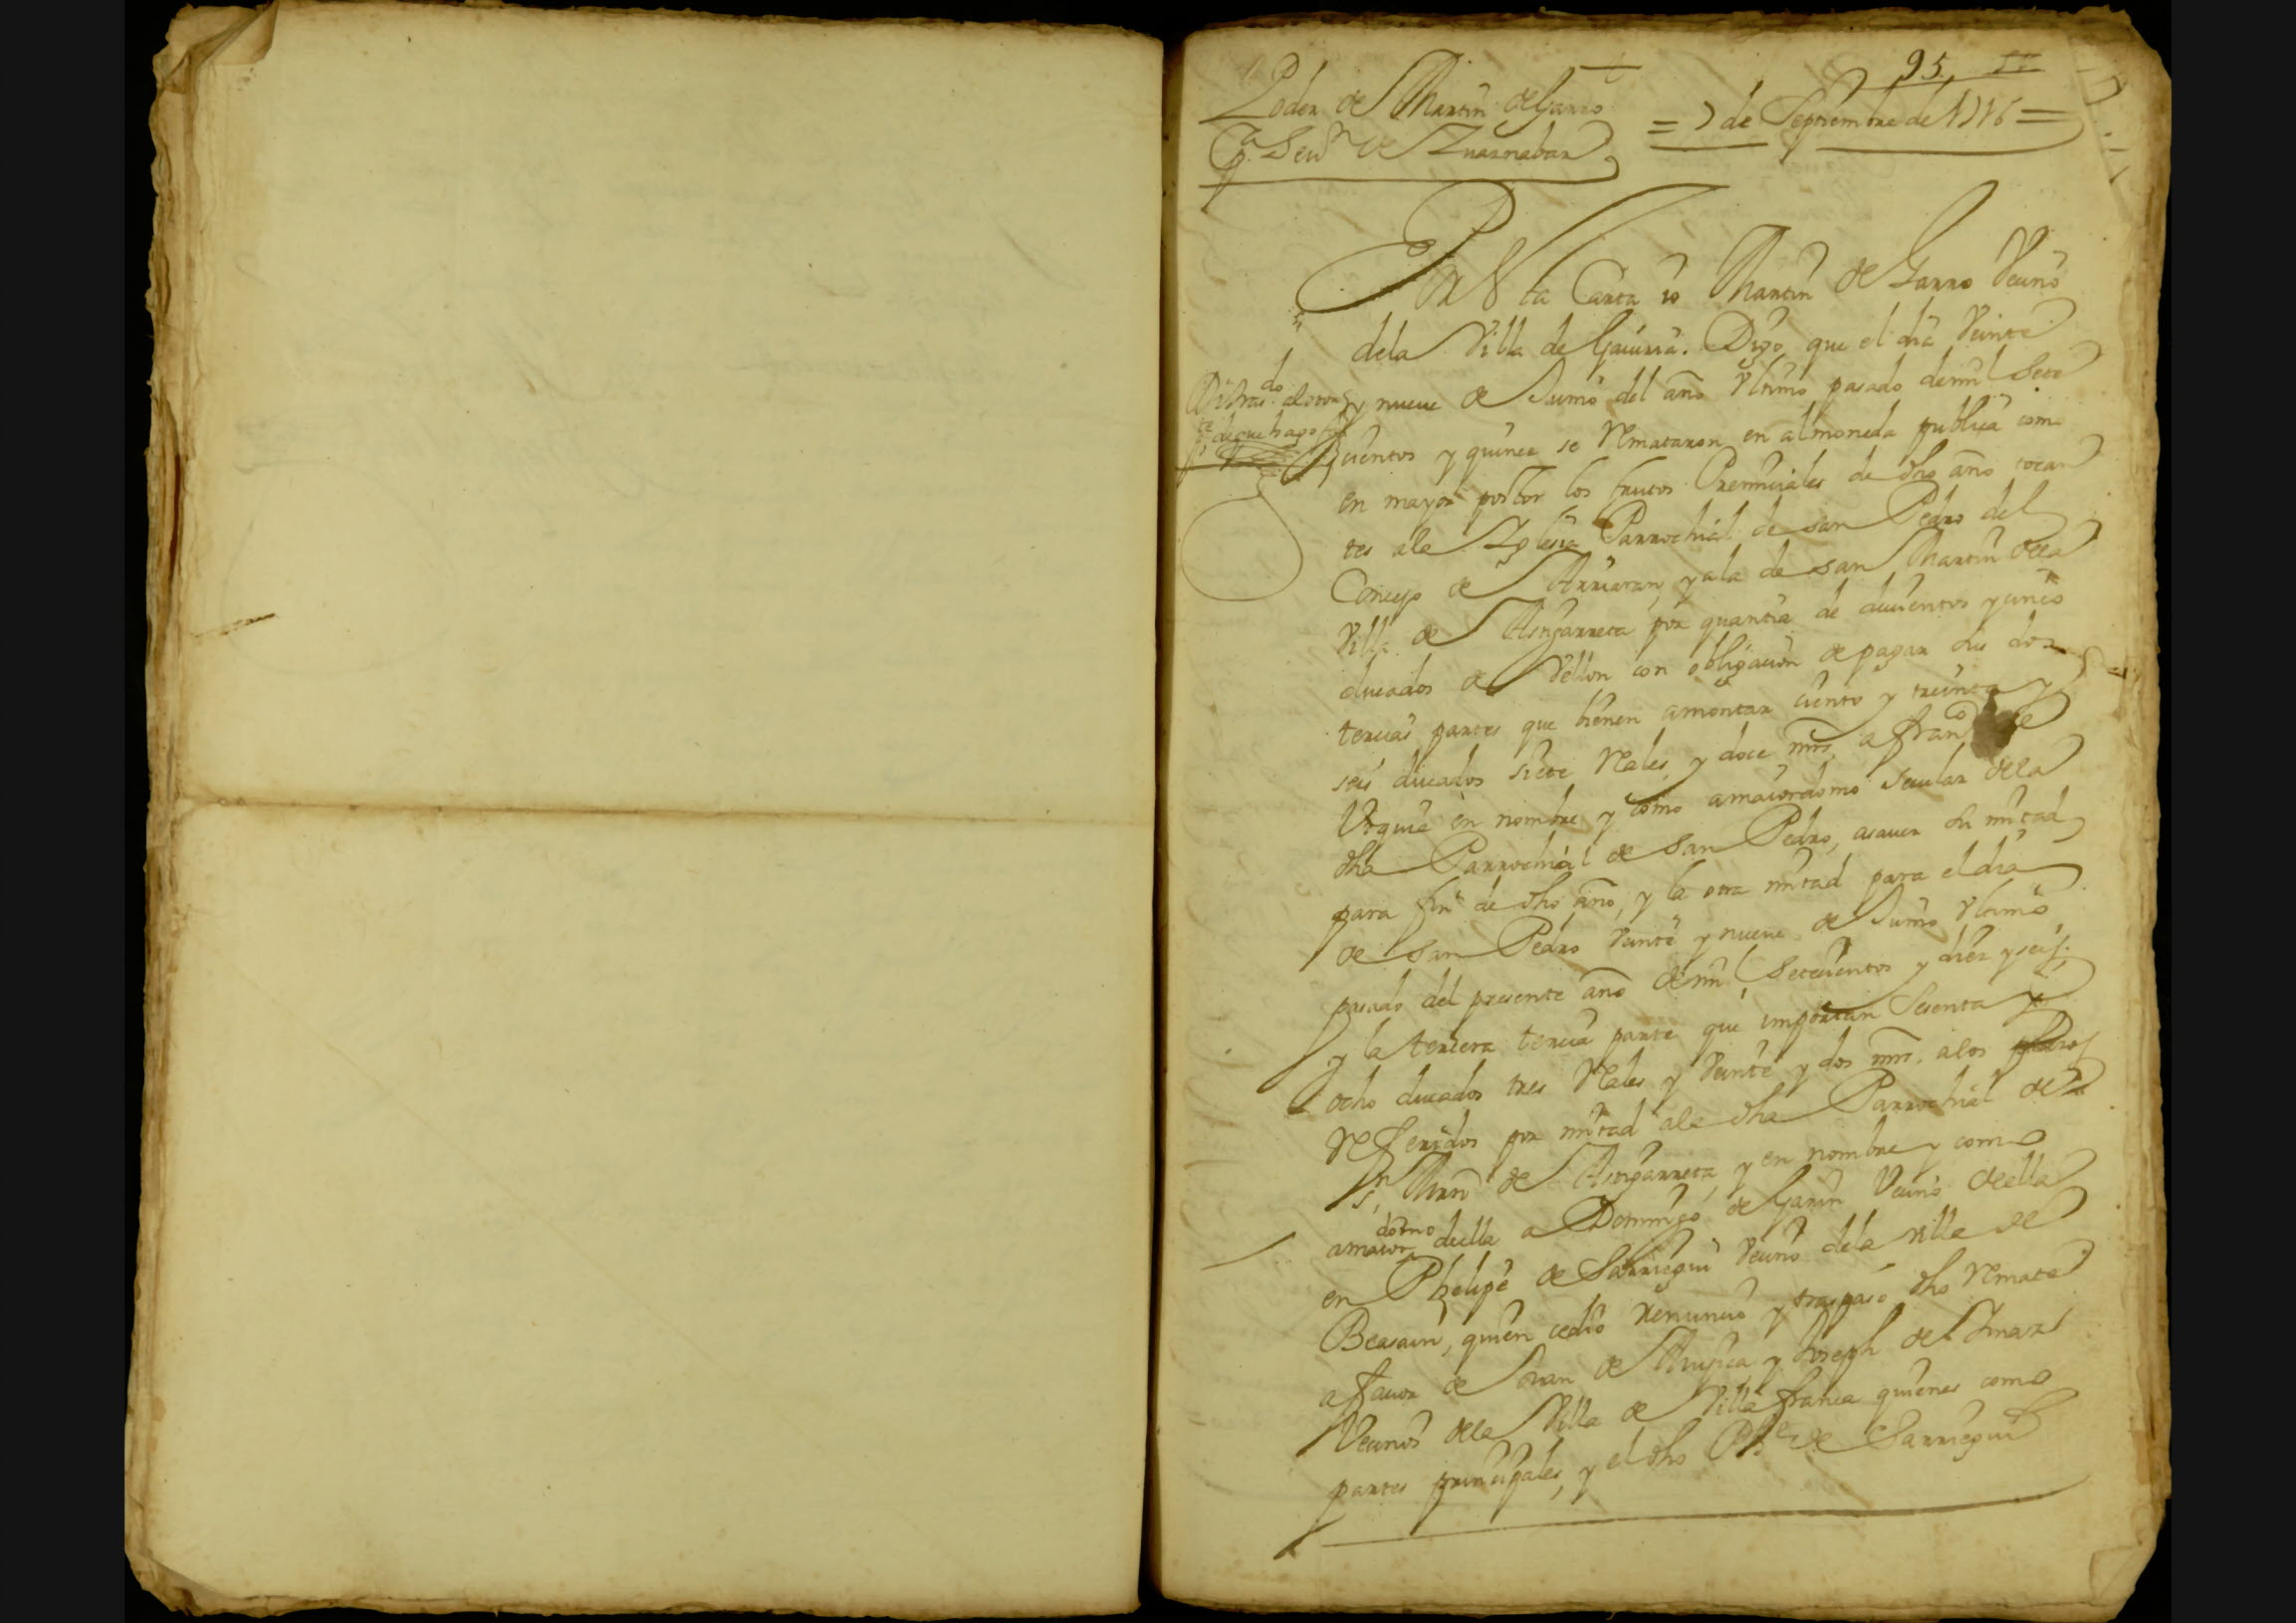 95
Poder de Martin de Garro
Pa Seun de Zuaznabar
= 7 de Septiembre de 1716 =
Por Esta Carta io Martin de Garro Vecino
dela Villa de Gauiria. Digo que el dia Veinte
y nueue de Junio del año Vltimo pasado demil Sete
cientos y quince se Remataron en almoneda publica como
en mayor postor los frutos Premiciales de dho año tocan
tes ala Yglesia Parrochial de san Pedro del
Concejo de Arriaran, y ala de san Martin dela
Villa de Astigarreta por quantia de ducientos y cinco
ducados de Vellon con obligacion de pagar sus dos
tercias partes que bienen amontar ciento y treinta y
seis ducados siete Reales y doce mrs, a Franco de
Vrquia en nombre y como amaiordomo Secular dela
dha Parrochial de San Pedro, asauer su mitad
para fin de dho año, y la otra mitad para el dia
de san Pedro Veinte y nueue de Junio Vltimo
pasado del presente año demil Setecientos y diez y seis;
y la tercera tercia parte que importan Sesenta y
ocho ducados tres Reales y Veinte y dos mrs. alos plazos
Referidos por mitad ala dha Parrochial de
Sn Mrn de Astigarreta, y en nombre y como
amaiordomo deella a Domingo de Garin Vecino deella
en Phelipe de Sarriegui Vecino dela villa de
Beasain, quien cedio renuncio y traspaso dho Remate
afauor de Juan de Mujica y Joseph de Aimar
Vecinos dela Villa de Villafranca quienes como
partes principales, y el dho Phe de Sarriegui